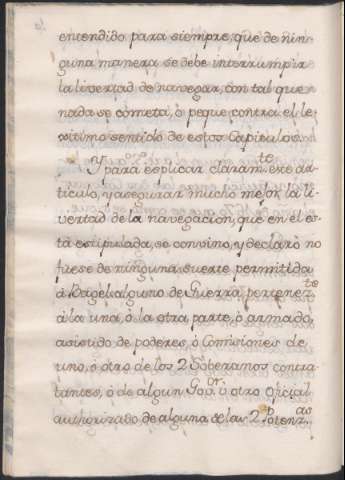 entendido para siempre, que de nin-
guna manera se debe interrumpir
la livertad de navegar, con tal que
nada se cometa, ò peque contra el le-
xitimo sentido de estos Capitulos.
Y para esplicar claram.te este ar-
ticulo, y asegurar mucho mejor la li-
vertad de la navegacion, que en él es-
tà estipulada, se convino, y declarò no
fuese de ninguna suerte permitida
à Bagel alguno de Guerra pertenez.te
à la una, ò la otra parte, ò armado,
asistido de poderes, ò Comisiones de
uno, ò otro de los 2 Soberanos contra-
tantes, ò de algun Gov.or ò otro Oficial
authorizado de alguna de las 2 Potenz.as